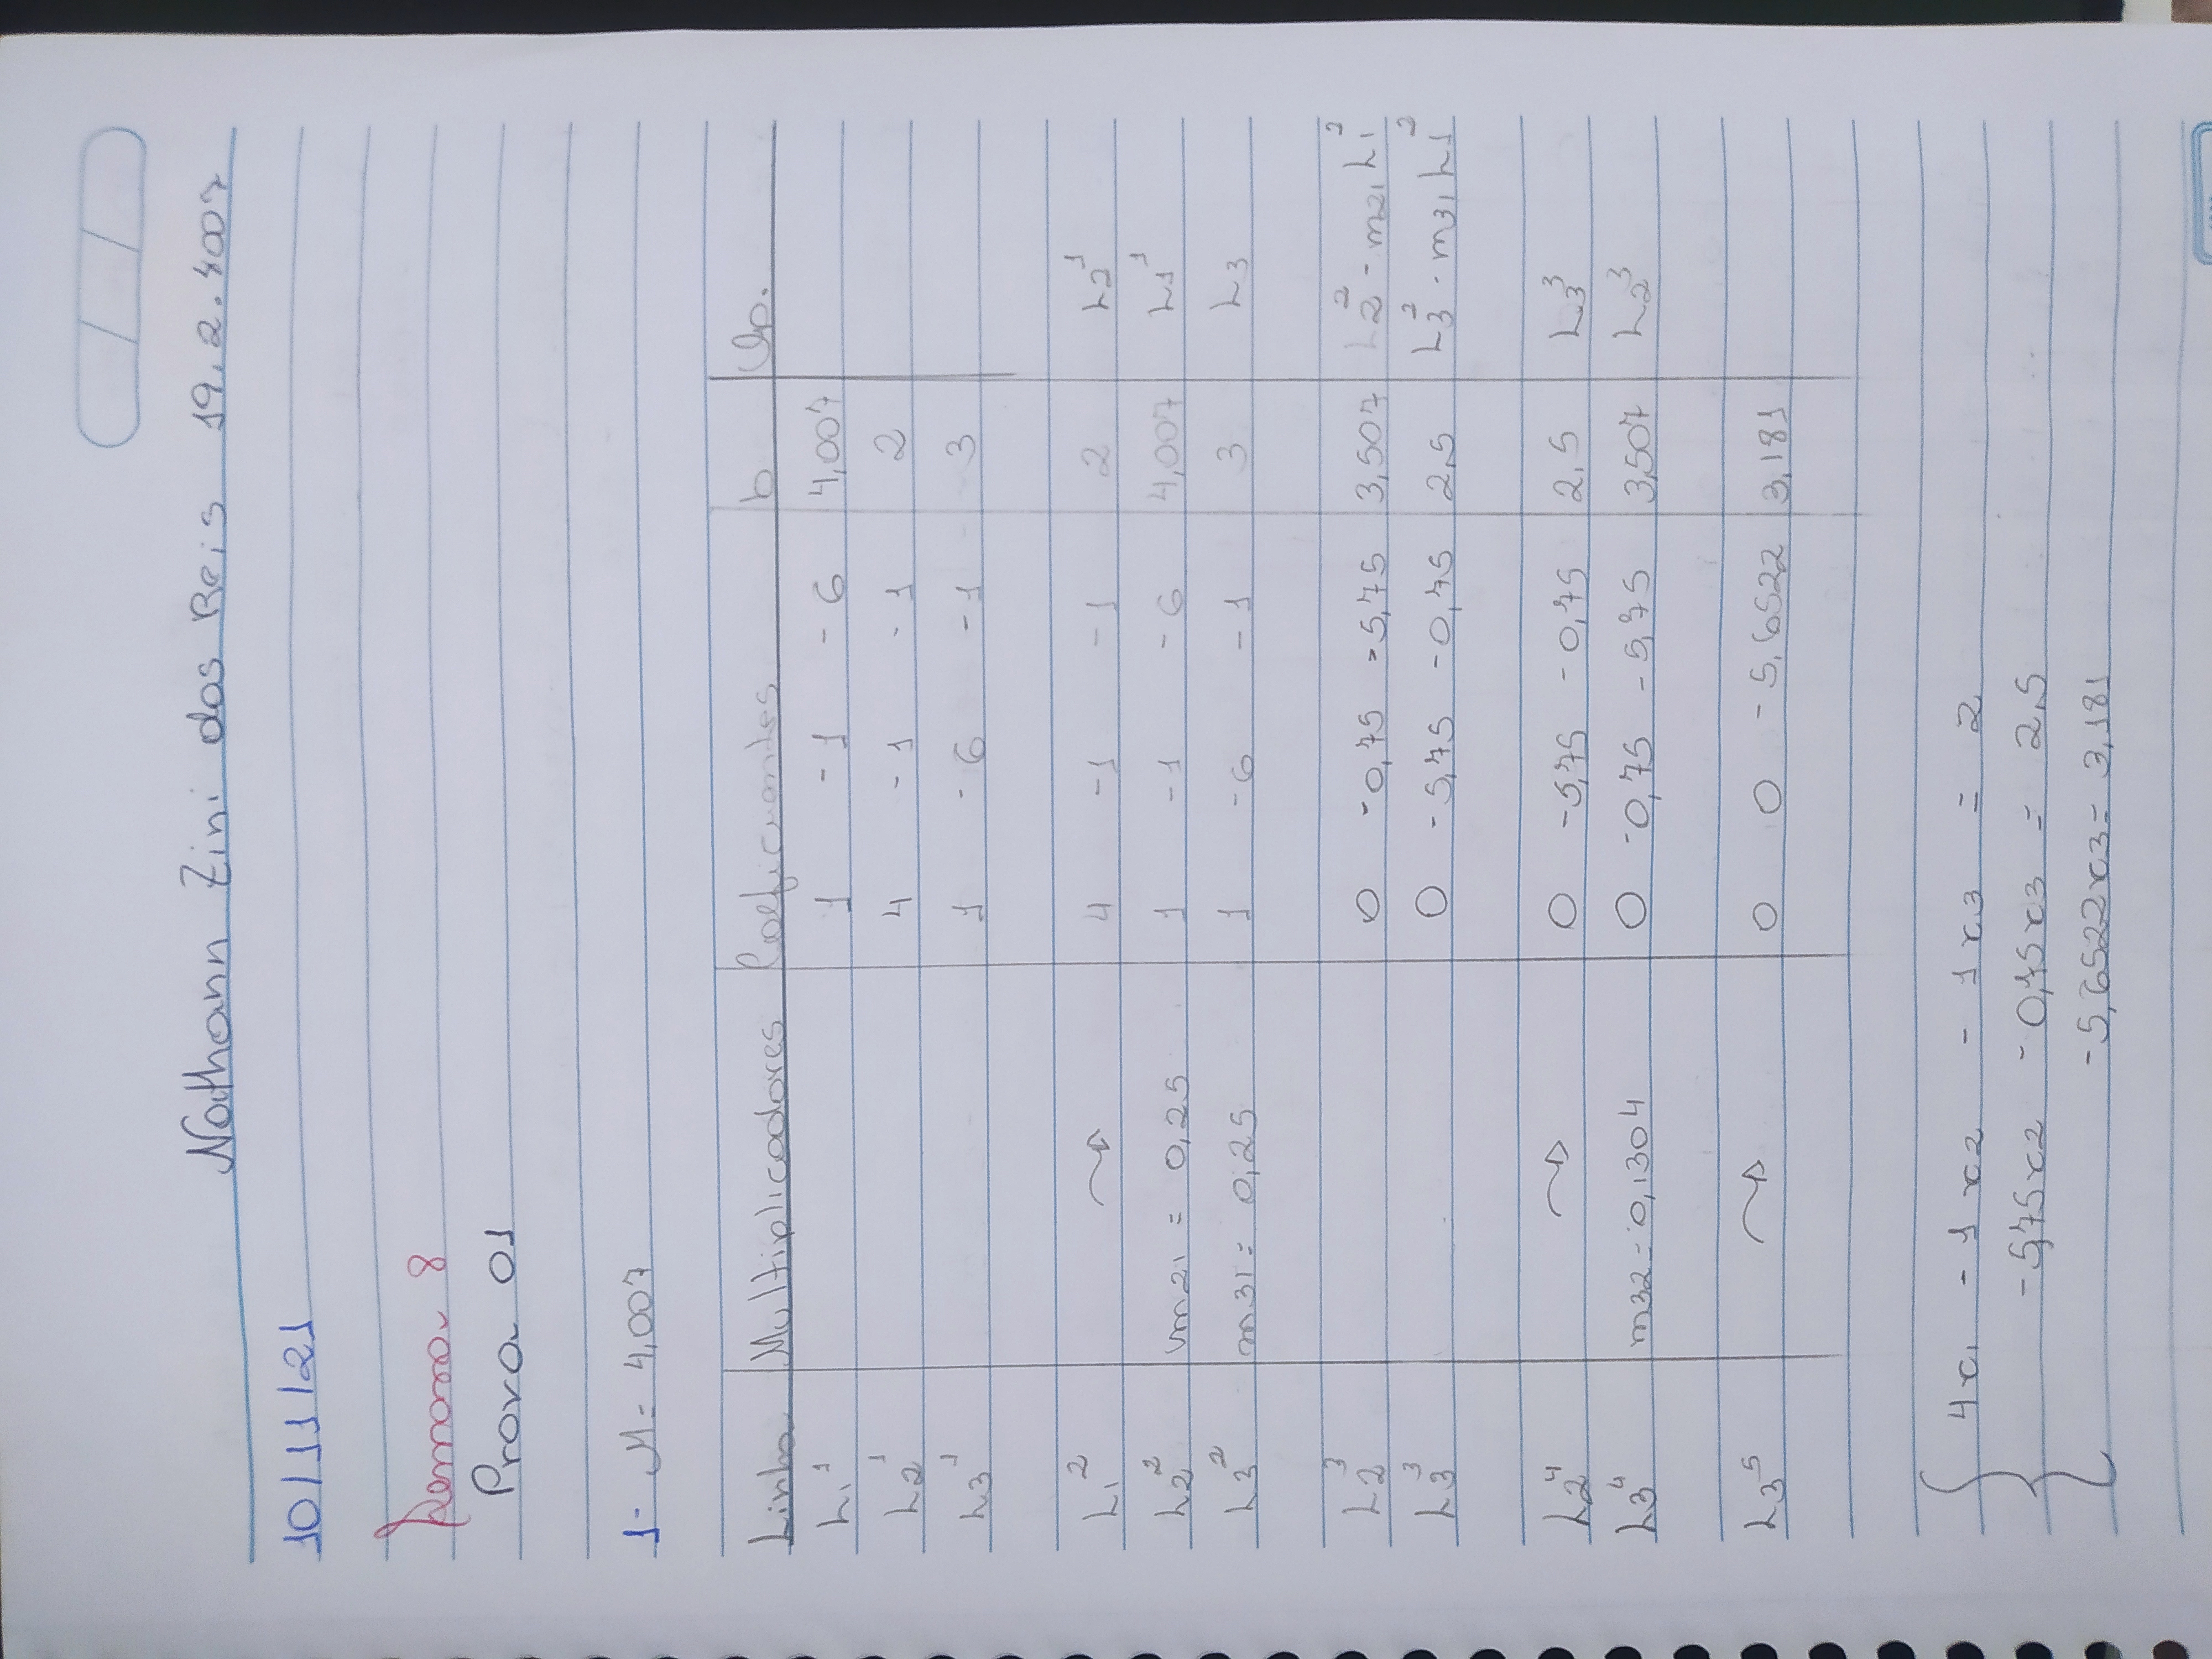 Nathann Zini dos Reis 19.2.4007
10/11/21
Semana 8
Prova 01
1- M = 4,007
Linha Multiplicadores Coeficientes b Op.
L1¹ 1 -1 -6 4,007
L2¹ 4 -1 -1 2
L3¹ 1 -6 -1 3
L1² 4 -1 -1 2 L2¹
L2² m21 = 0,25 1 -1 -6 4,007 L1¹
L3² m31 = 0,25 1 -6 -1 3 L3
L2³ 0 -0,75 -5,75 3,507 L2² - m21 L1²
L3³ 0 -5,75 -0,75 2,5 L3² - m31 L1²
L2⁴ 0 -5,75 -0,75 2,5 L3³
L3⁴ m32 = 0,1304 0 -0,75 -5,75 3,507 L2³
L3⁵ 0 0 -5,6522 3,181
4x1 - 1x2 - 1x3 = 2
-5,75x2 - 0,75x3 = 2,5
-5,6522x3 = 3,181